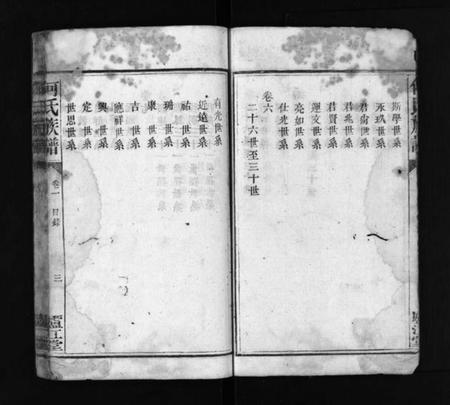 斯學世系
永玖世系
君甫世系
君兆世系
君賢世系
運文世系
亮如世系
仕光世系
卷六
二十六世至三十世
有光世系
近遠世系
祐世系
珊世系
康世系
吉世系
應祥世系
興世系
定世系
世恩世系
何氏族譜
卷一 目錄
三
廬江堂